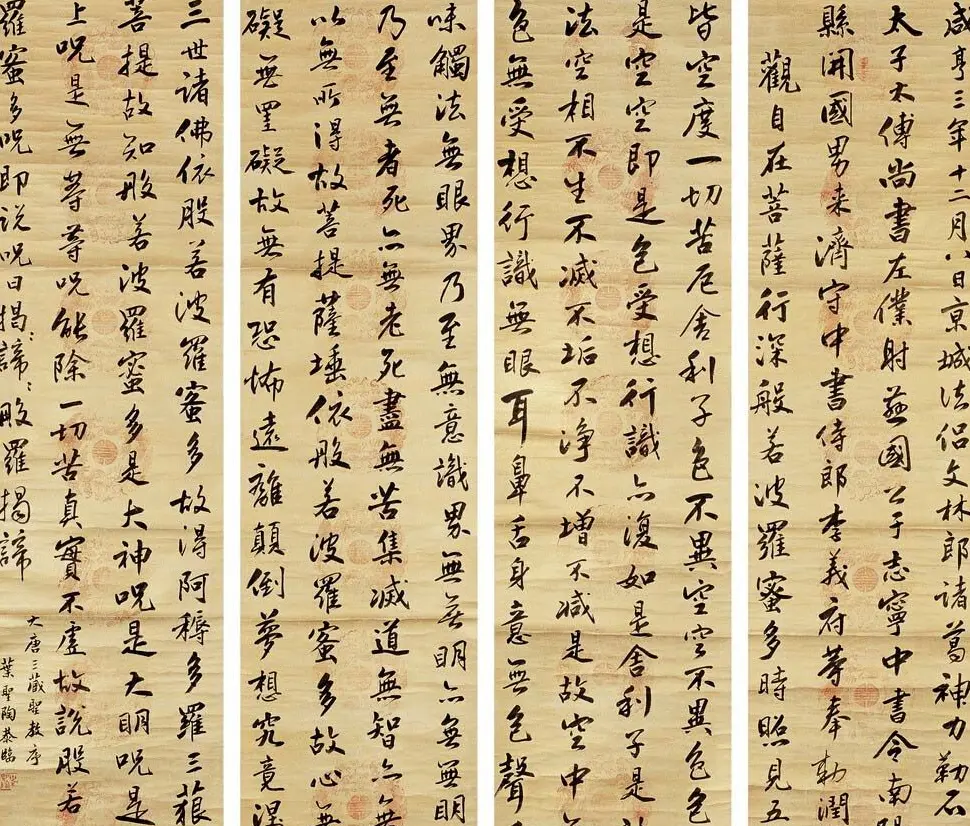 咸亨三年十二月八日京城法侣文林郎諸葛神力勒石
太子太傅尚書左僕射燕國公于志寧中書令南
縣開國男来濟守中書侍郎李義府等奉勅潤
觀自在菩薩行深般若波羅蜜多時照見五
皆空度一切苦厄舍利子色不異空空不異色色
是空空即是色受想行識亦復如是舍利子是
法空相不生不滅不垢不淨不增不减是故空中
色無受想行識無眼耳鼻舌身意無色聲
味觸法無眼界乃至無意識界無無明亦無無明
乃至無者死亦無老死盡無苦集滅道無智亦無
以無所得故菩提薩埵依般若波羅蜜多故心無
礙無罣礙故無有恐怖遠離顛倒夢想究竟涅
三世諸佛依般若波羅蜜多故得阿耨多羅三藐
菩提故知般若波羅蜜多是大神呪是大明呪是
上呪是無等等呪能除一切苦真實不虛故說般若
羅蜜多呪即說呪曰揭:諦:般羅揭諦
大唐三藏聖教序
葉聖陶恭臨